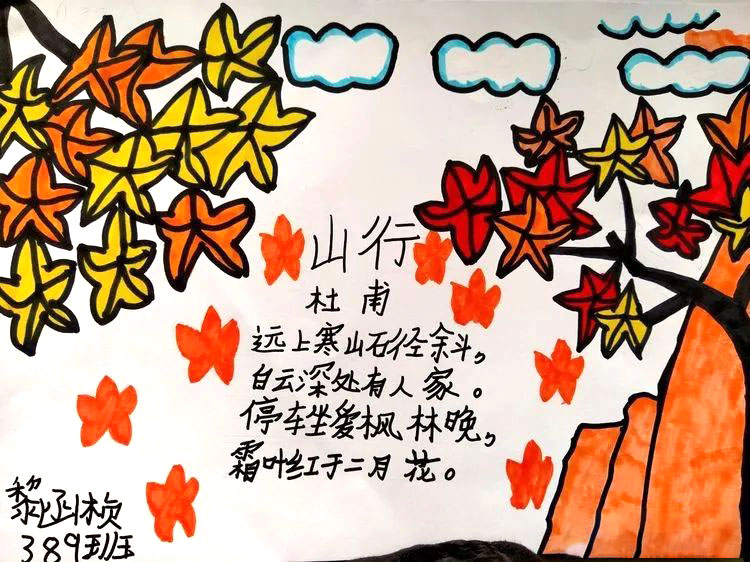 山行
杜甫
远上寒山石径余斗，
白云深处有人家。
停车坐爱枫林晚，
霜叶红于二月花。
黎函桢
389班